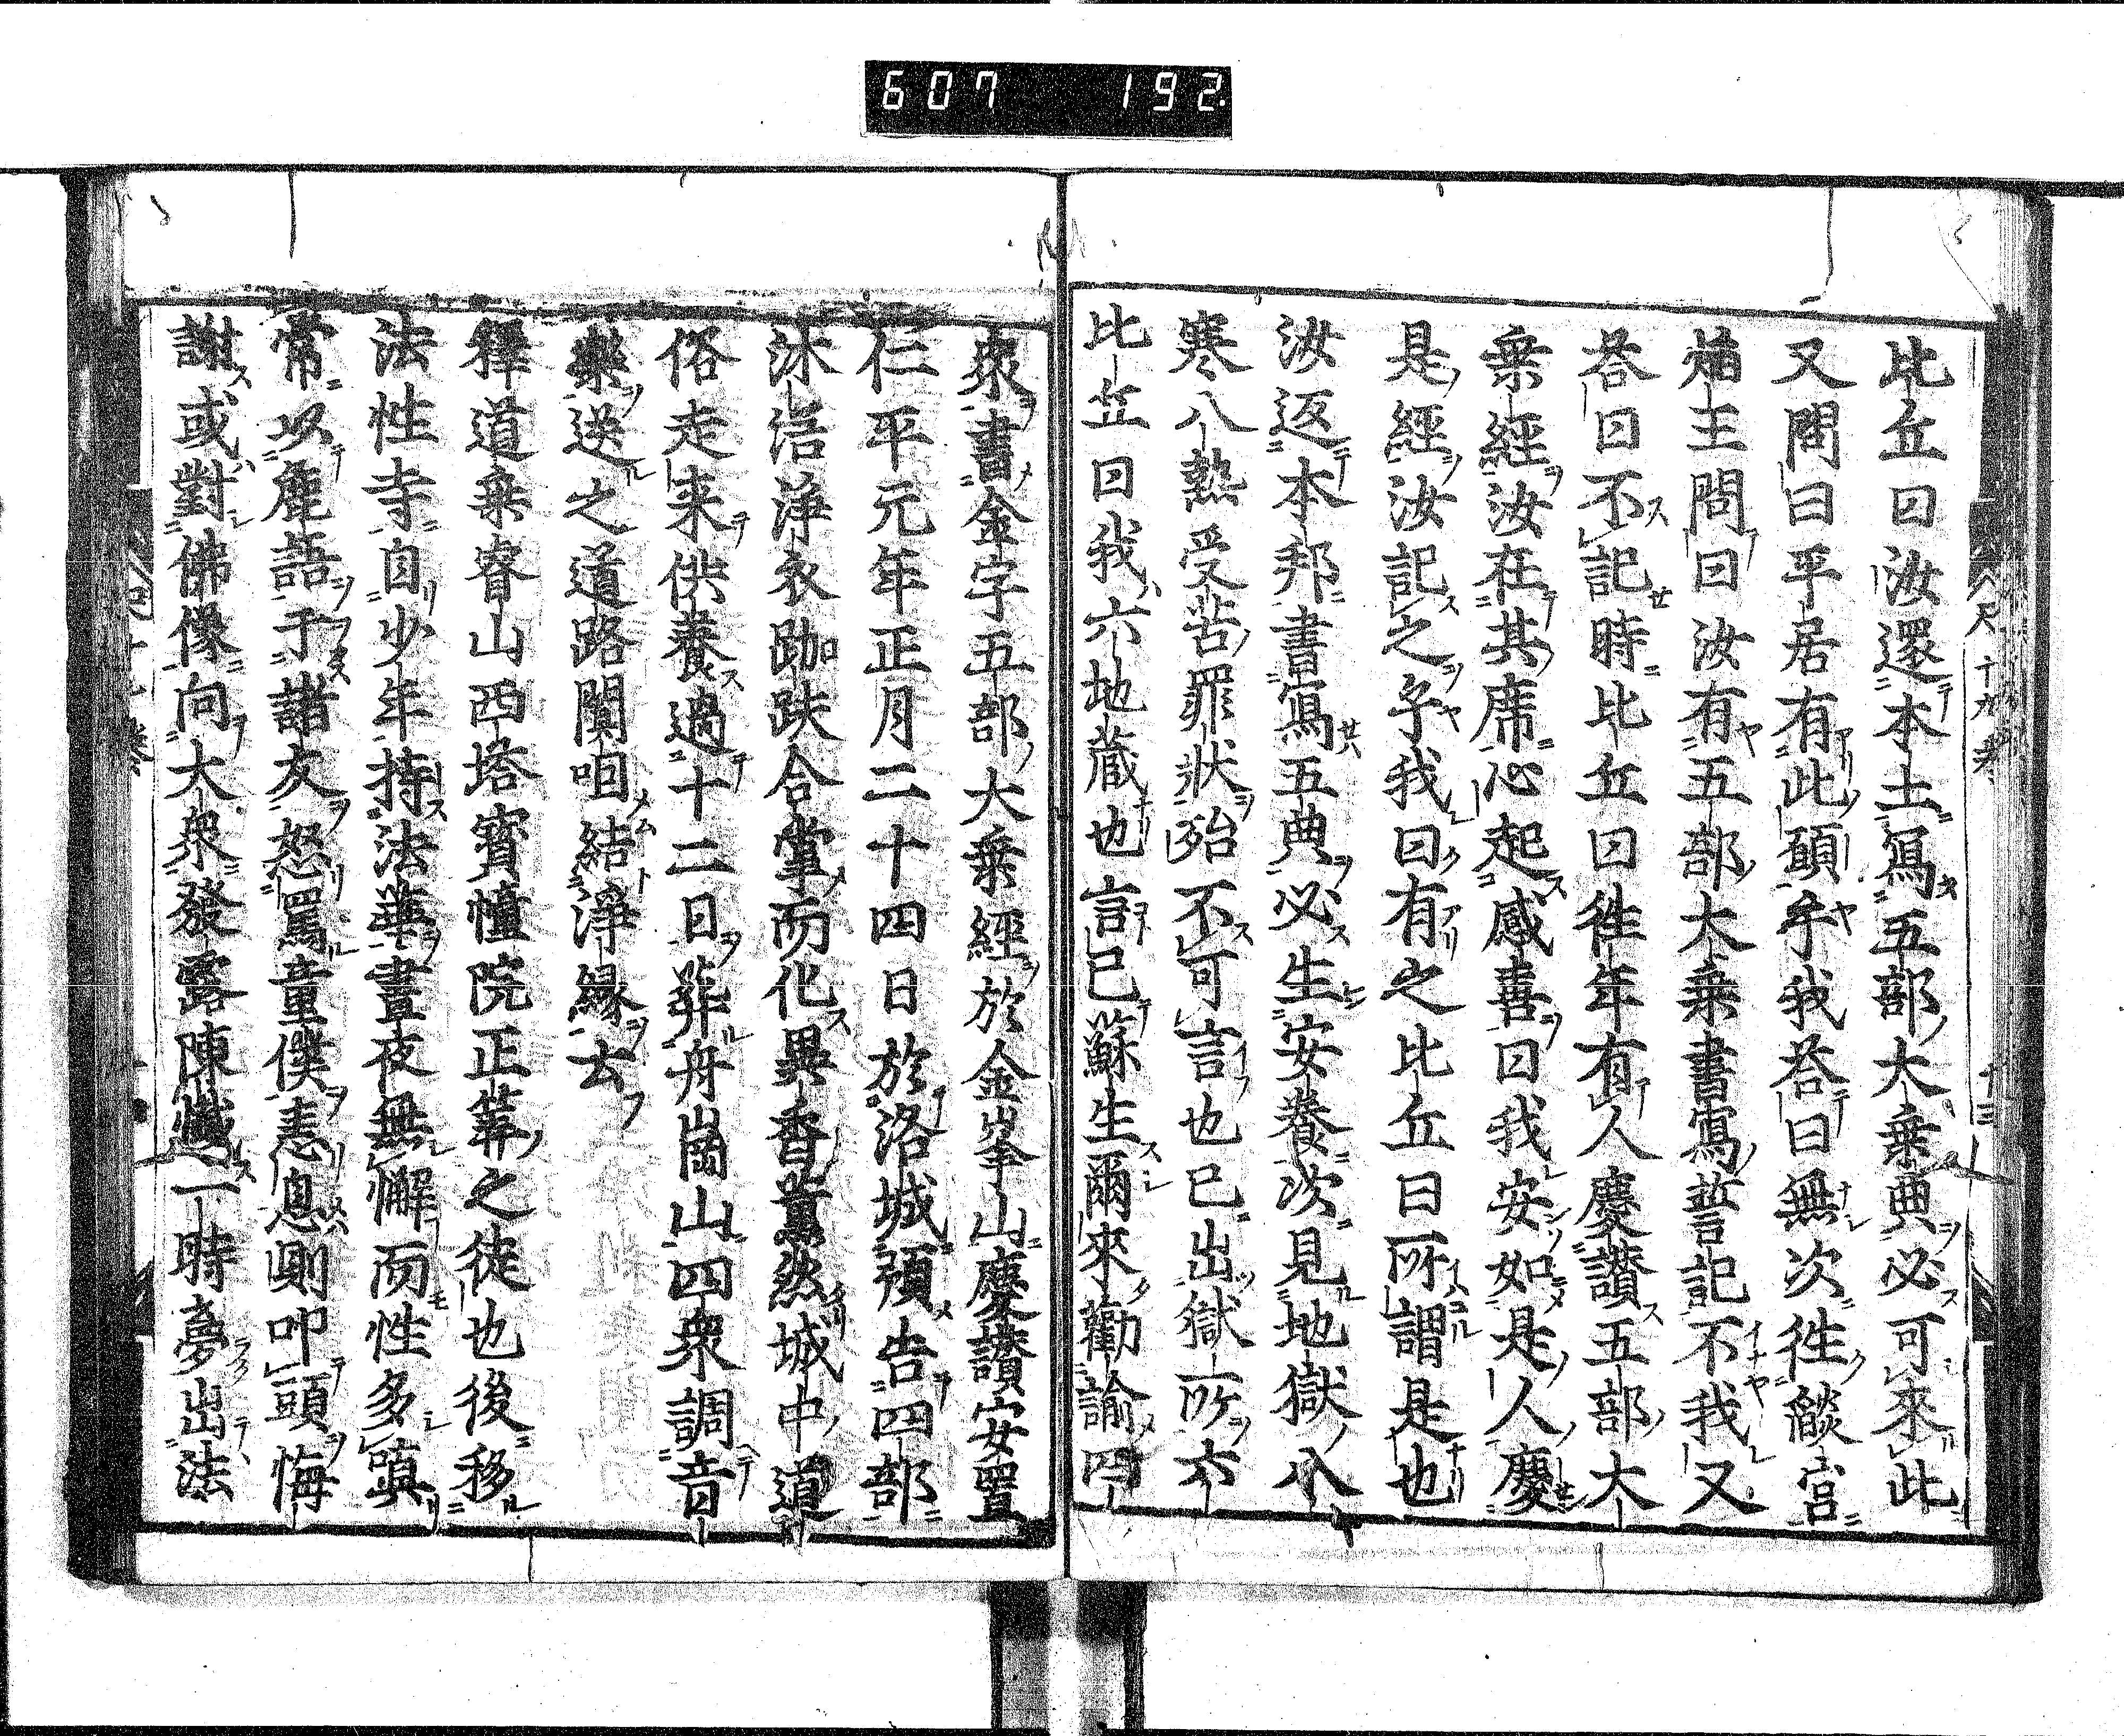 607 192
比丘曰汝還本土寫五部大乗典必可來此
又問曰平居有此願乎我荅曰無次徃燄宮
焔王問曰汝有五部大乗書寫誓記不我又
荅曰不記時比丘曰徃年有人慶讃五部大
乗經汝在其席心起感喜曰我安如是人慶
是經汝記之乎我曰有之比丘曰所謂是也
汝返本邦書寫五典必生安養次見地獄八
寒八熱受苦罪狀殆不可言也已出獄所六
比丘曰我六地蔵也言已蘇生爾來勸諭四
衆書金字五部大乗經於金峯山慶讃安置
仁平元年正月二十四日於洛城預告四部
沐浴浄衣跏趺合掌而化異香薫然城中道
俗走来供養過十二日葬舟崗山四衆調音
樂送之道路闐咽結淨縁去
釋道乗睿山西塔寳幢院正筭之徒也後移
法性寺自少年持法華晝夜無懈而性多嗔
常以麁語于諸友怒罵童僕恚息則叩頭悔
謝或對佛像向大衆發露陳懺一時夢出法